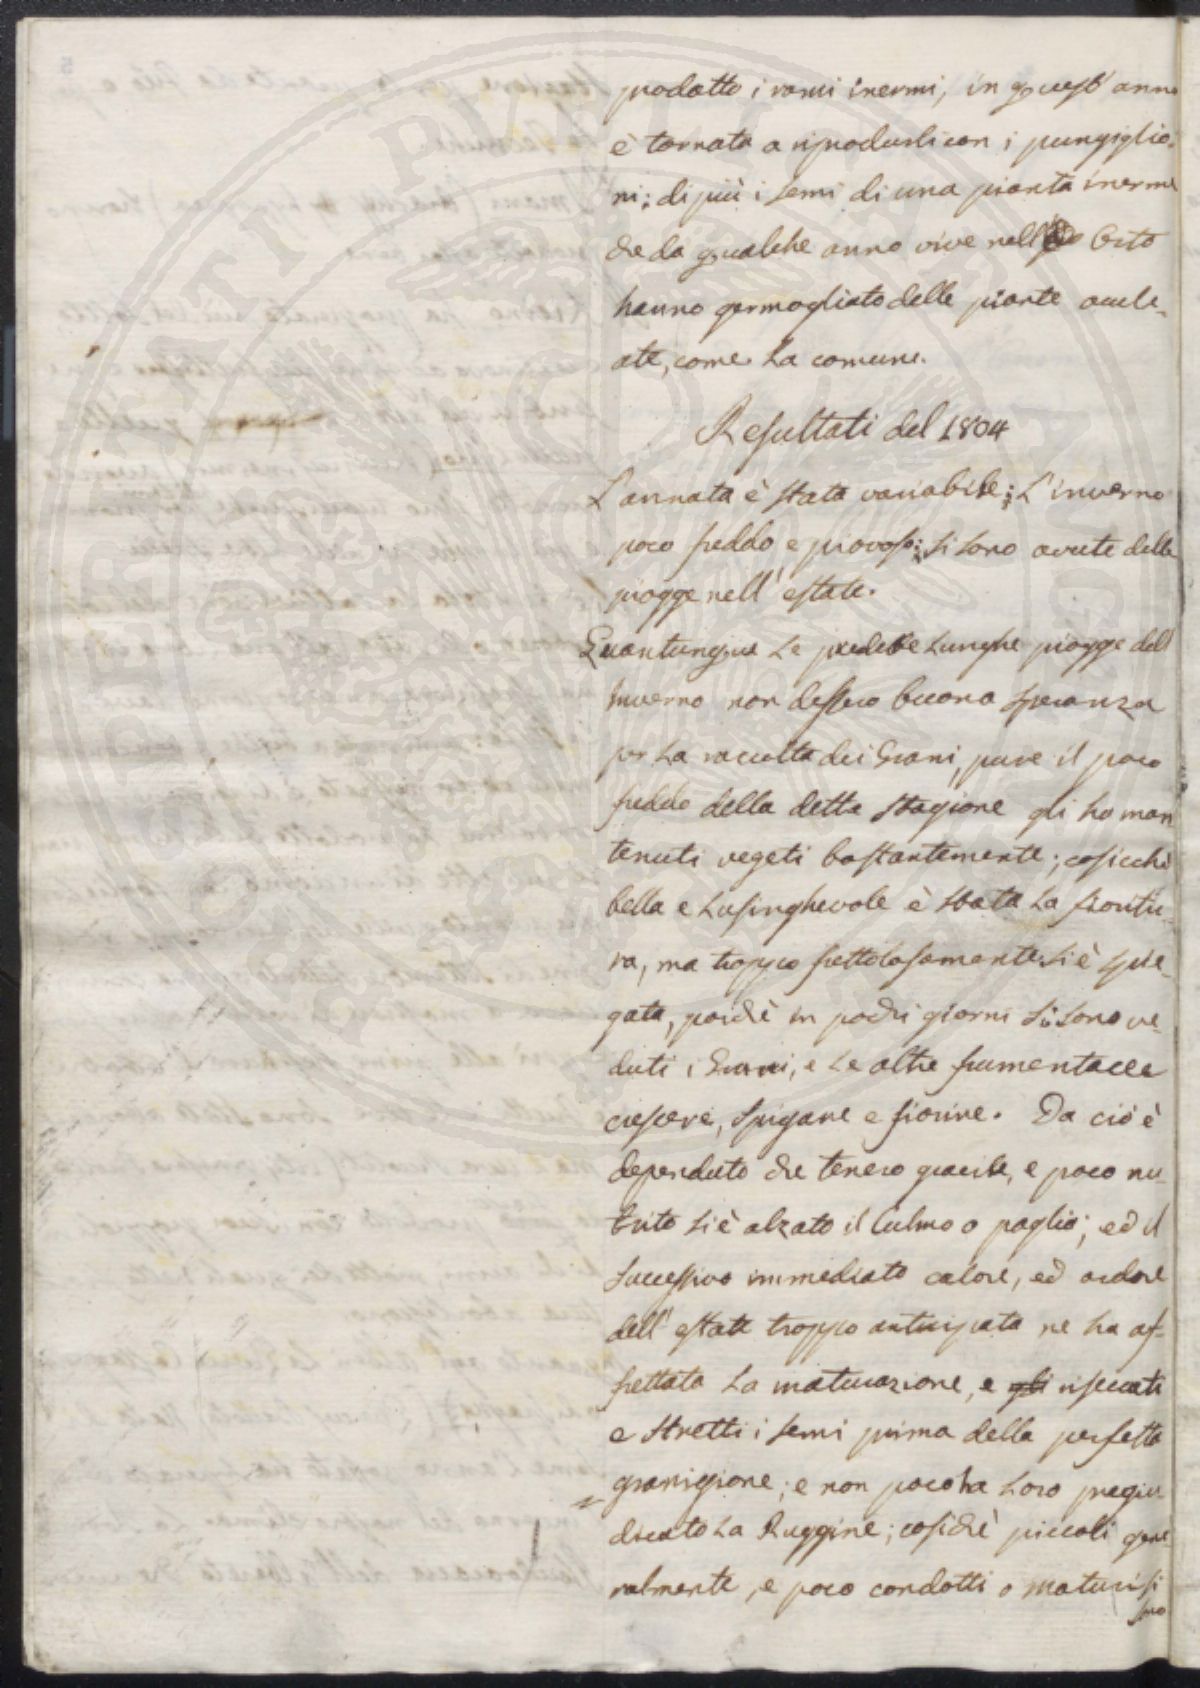 prodotto i rami inermi, in quest'anno
è tornata a riprodurli con i pungiglio-
ni; di più i semi di una pianta inerme
che da qualche anno vive nell' Orto
hanno germogliato delle piante acule-
ate, come la comune.
Resultati del 1804
L'annata è stata variabile; L'inverno
poco freddo e piovoso; si sono avute delle
piogge nell'estate.
Quantunque le predette lunghe piogge dell'
Inverno non dessero buona speranza
per la raccolta dei Grani, pure il poco
freddo della detta stagione gli ha man
tenuti vegeti bastantemente; cosicchè
bella e lusinghevole è stata la fioritu-
ra, ma troppo frettolosamente si è spie-
gata, poichè in pochi giorni si sono ve-
duti i Grani, e le altre frumentacee
crescere, spigare e fiorire. Da ciò è
dependuto che tenero gracile, e poco nu-
trito si è alzato il Culmo o paglia; ed il
successivo immediato calore, ed ardore
dell'estate troppo anticipata ne ha af-
frettata la maturazione, e gli riseccati
e stretti i semi prima della perfetta
granigione; e non poco ha loro pregiu
dicato la Ruggine; cosichè piccoli gene
ralmente, e poco condotti o maturi si
sono